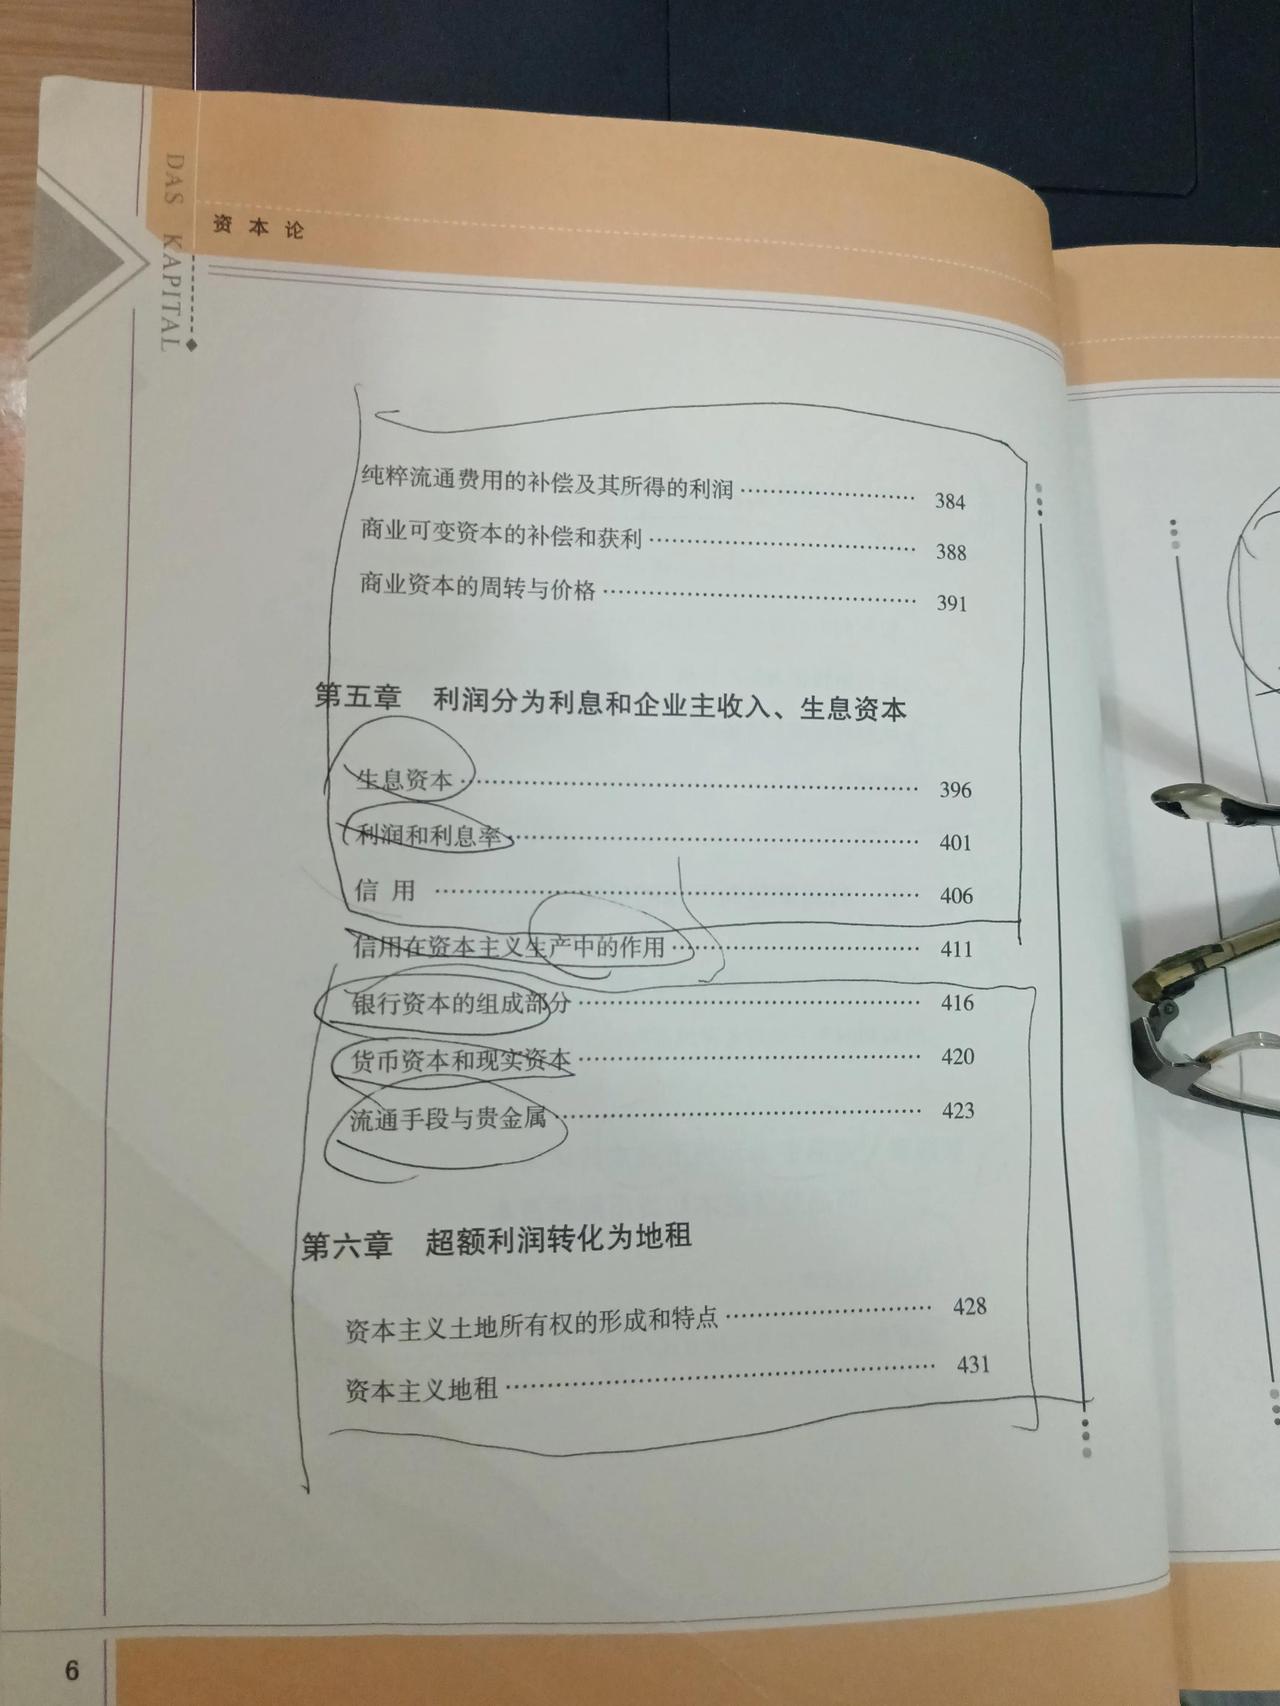 DAS KAPITAL
资本论
纯粹流通费用的补偿及其所得的利润 ······················· 384
商业可变资本的补偿和获利 ································· 388
商业资本的周转与价格 ······································· 391
第五章 利润分为利息和企业主收入、生息资本
生息资本 ························································· 396
利润和利息率 ··················································· 401
信 用 ····························································· 406
信用在资本主义生产中的作用 ······························ 411
银行资本的组成部分 ·········································· 416
货币资本和现实资本 ·········································· 420
流通手段与贵金属 ············································· 423
第六章 超额利润转化为地租
资本主义土地所有权的形成和特点 ························ 428
资本主义地租 ··················································· 431
6